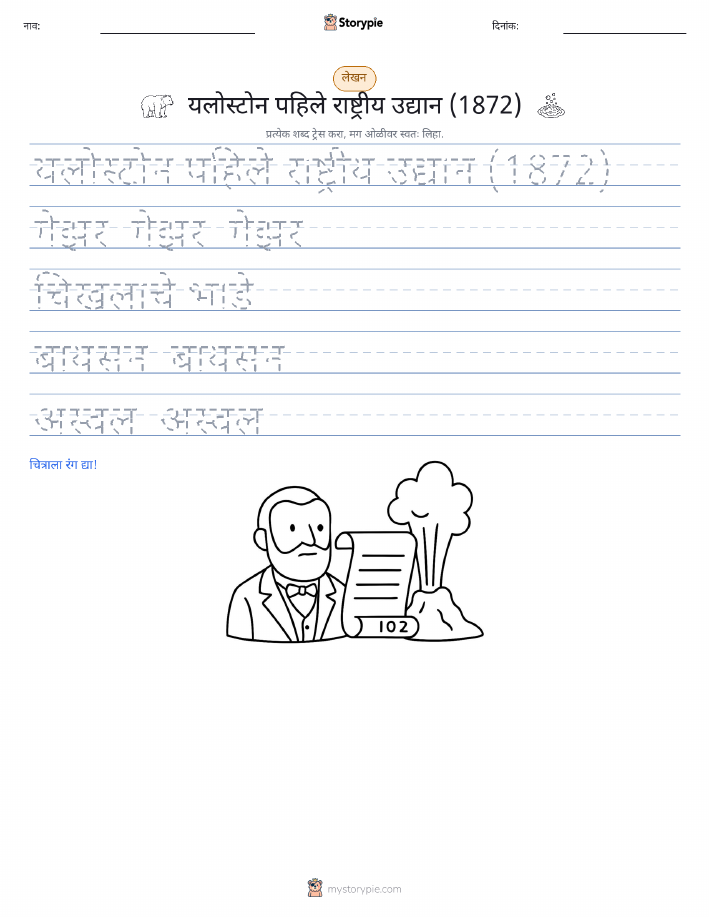 नाव:
Storypie
दिनांक:
लेखन
यलोस्टोन पहिले राष्ट्रीय उद्यान (1872)
प्रत्येक शब्द ट्रेस करा, मग ओळीवर स्वतः लिहा.
यलोस्टोन पहिले राष्ट्रीय उद्यान (1872)
गेझर गेझर गेझर
चिखलाचे भांडे
बायसन बायसन
अस्वल अस्वल
चित्राला रंग द्या!
102
mystorypie.com